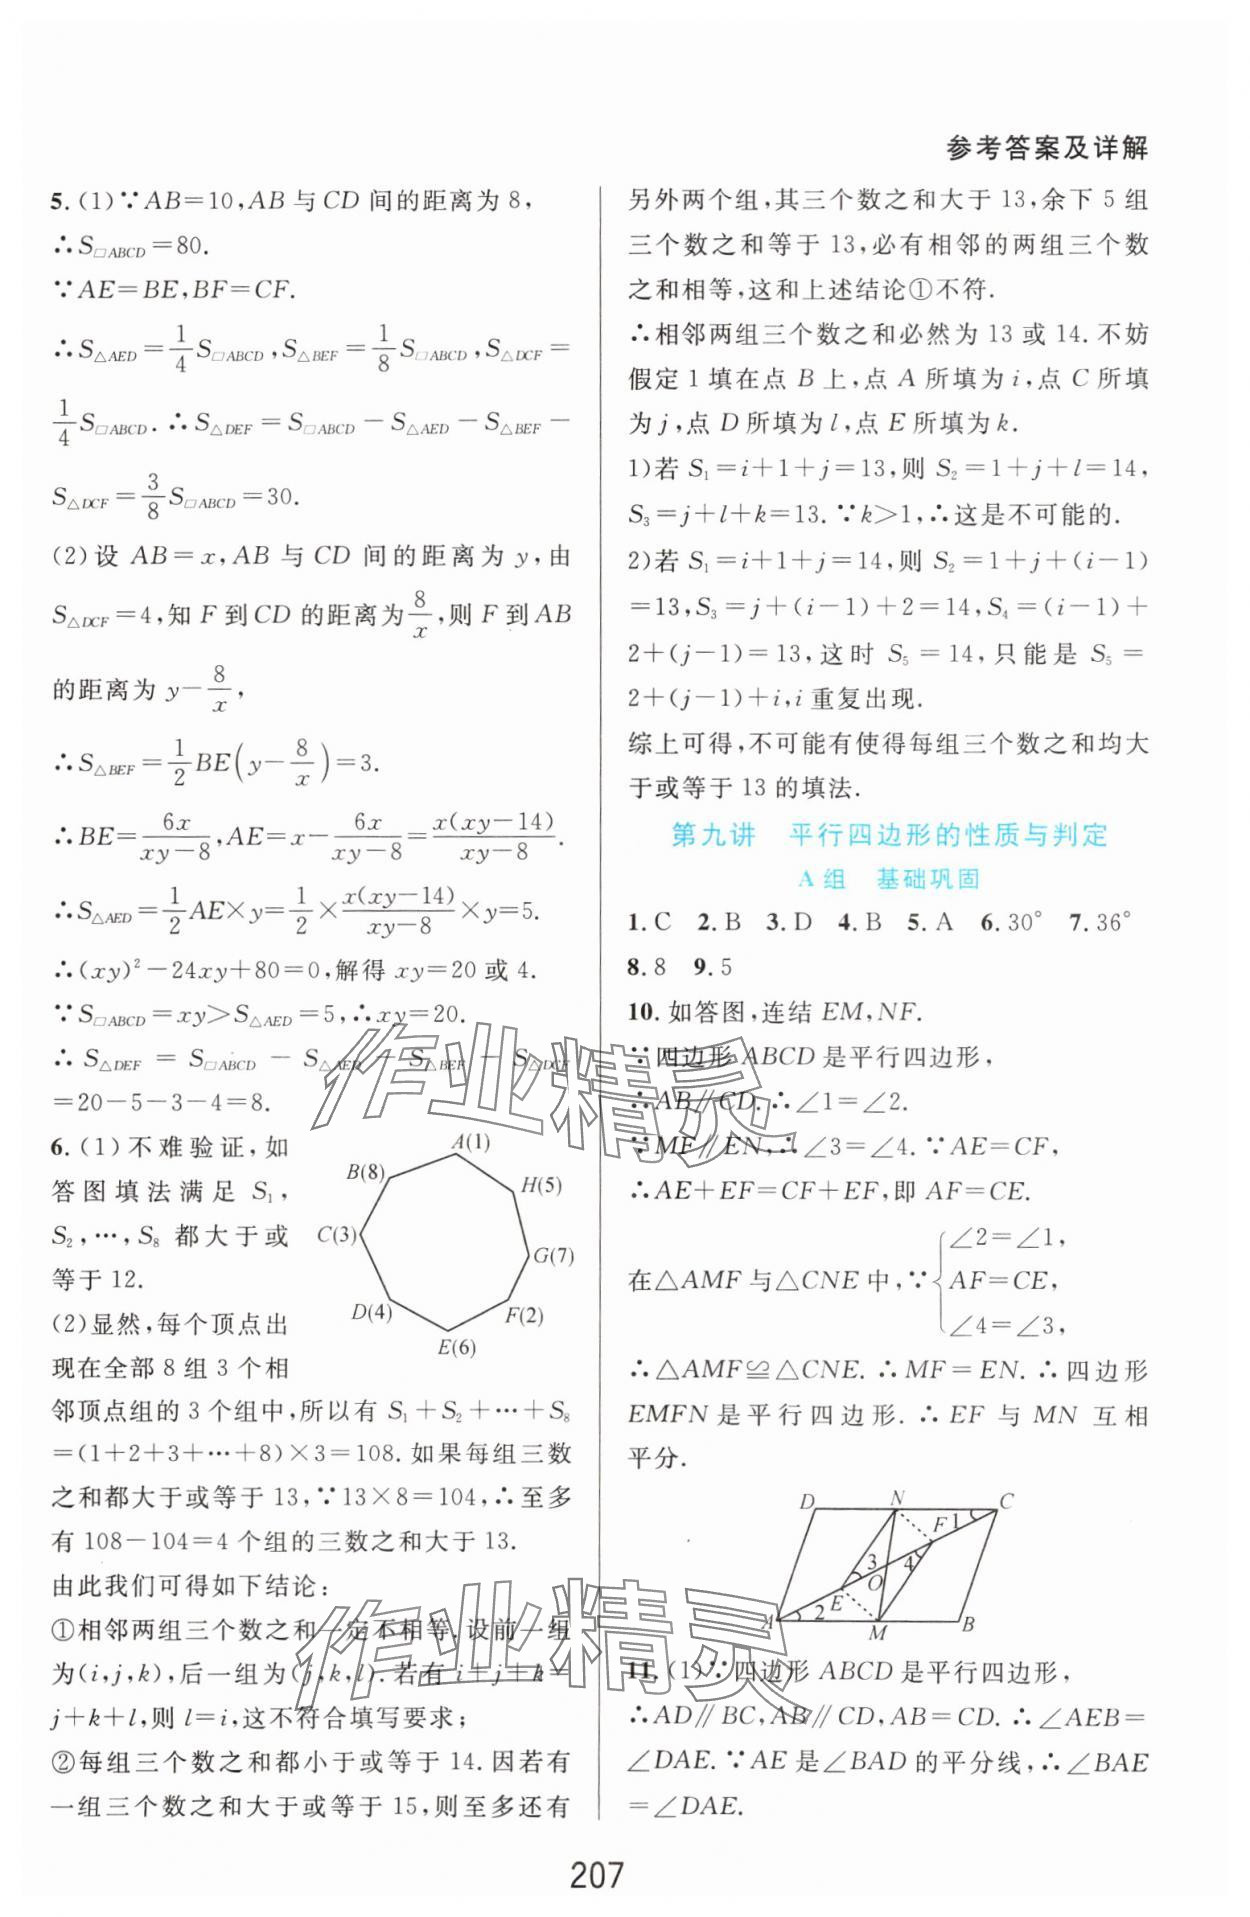 参考答案及详解
5.(1)∵AB=10,AB与CD间的距离为8,
∴S□ABCD=80.
∵AE=BE,BF=CF.
∴S△AED=1/4S□ABCD,S△BEF=1/8S□ABCD,S△DCF=
1/4S□ABCD.∴S△DEF=S□ABCD-S△AED-S△BEF-
S△DCF=3/8S□ABCD=30.
(2)设AB=x,AB与CD间的距离为y,由
S△DCF=4,知F到CD的距离为8/x,则F到AB
的距离为y-8/x,
∴S△BEF=1/2BE(y-8/x)=3.
∴BE=6x/(xy-8),AE=x-6x/(xy-8)=x(xy-14)/(xy-8).
∴S△AED=1/2AE×y=1/2×x(xy-14)/(xy-8)×y=5.
∴(xy)²-24xy+80=0,解得xy=20或4.
∵S□ABCD=xy>S△AED=5,∴xy=20.
∴S△DEF=S□ABCD-S△AED-S△BEF-S△DCF
=20-5-3-4=8.
6.(1)不难验证,如
答图填法满足S₁,
S₂,…,S₈都大于或
等于12.
(2)显然,每个顶点出
现在全部8组3个相
A(1)
B(8)
H(5)
C(3)
G(7)
D(4)
F(2)
E(6)
邻顶点组的3个组中,所以有S₁+S₂+…+S₈
=(1+2+3+…+8)×3=108.如果每组三数
之和都大于或等于13,∵13×8=104,∴至多
有108-104=4个组的三数之和大于13.
由此我们可得如下结论:
①相邻两组三个数之和一定不相等.设前一组
为(i,j,k),后一组为(j,k,l).若有i+j+k=
j+k+l,则l=i,这不符合填写要求;
②每组三个数之和都小于或等于14.因若有
一组三个数之和大于或等于15,则至多还有
另外两个组,其三个数之和大于13,余下5组
三个数之和等于13,必有相邻的两组三个数
之和相等,这和上述结论①不符.
∴相邻两组三个数之和必然为13或14.不妨
假定1填在点B上,点A所填为i,点C所填
为j,点D所填为l,点E所填为k.
1)若S₁=i+1+j=13,则S₂=1+j+l=14,
S₃=j+l+k=13.∵k>1,∴这是不可能的.
2)若S₁=i+1+j=14,则S₂=1+j+(i-1)
=13,S₃=j+(i-1)+2=14,S₄=(i-1)+
2+(j-1)=13,这时S₅=14,只能是S₅=
2+(j-1)+i,i重复出现.
综上可得,不可能有使得每组三个数之和均大
于或等于13的填法.
第九讲 平行四边形的性质与判定
A组 基础巩固
1.C 2.B 3.D 4.B 5.A 6.30° 7.36°
8.8 9.5
10.如答图,连结EM,NF.
∵四边形ABCD是平行四边形,
∴AB∥CD.∴∠1=∠2.
∵MF∥EN,∴∠3=∠4.∵AE=CF,
∴AE+EF=CF+EF,即AF=CE.
在△AMF与△CNE中,∵{∠2=∠1,
AF=CE,
∠4=∠3,
∴△AMF≌△CNE.∴MF=EN.∴四边形
EMFN是平行四边形.∴EF与MN互相
平分.
D N C
F 1
3 4
O
E
A 2 M B
11.(1)∵四边形ABCD是平行四边形,
∴AD∥BC,AB∥CD,AB=CD.∴∠AEB=
∠DAE.∵AE是∠BAD的平分线,∴∠BAE
=∠DAE.
207
作业精灵
作业精灵